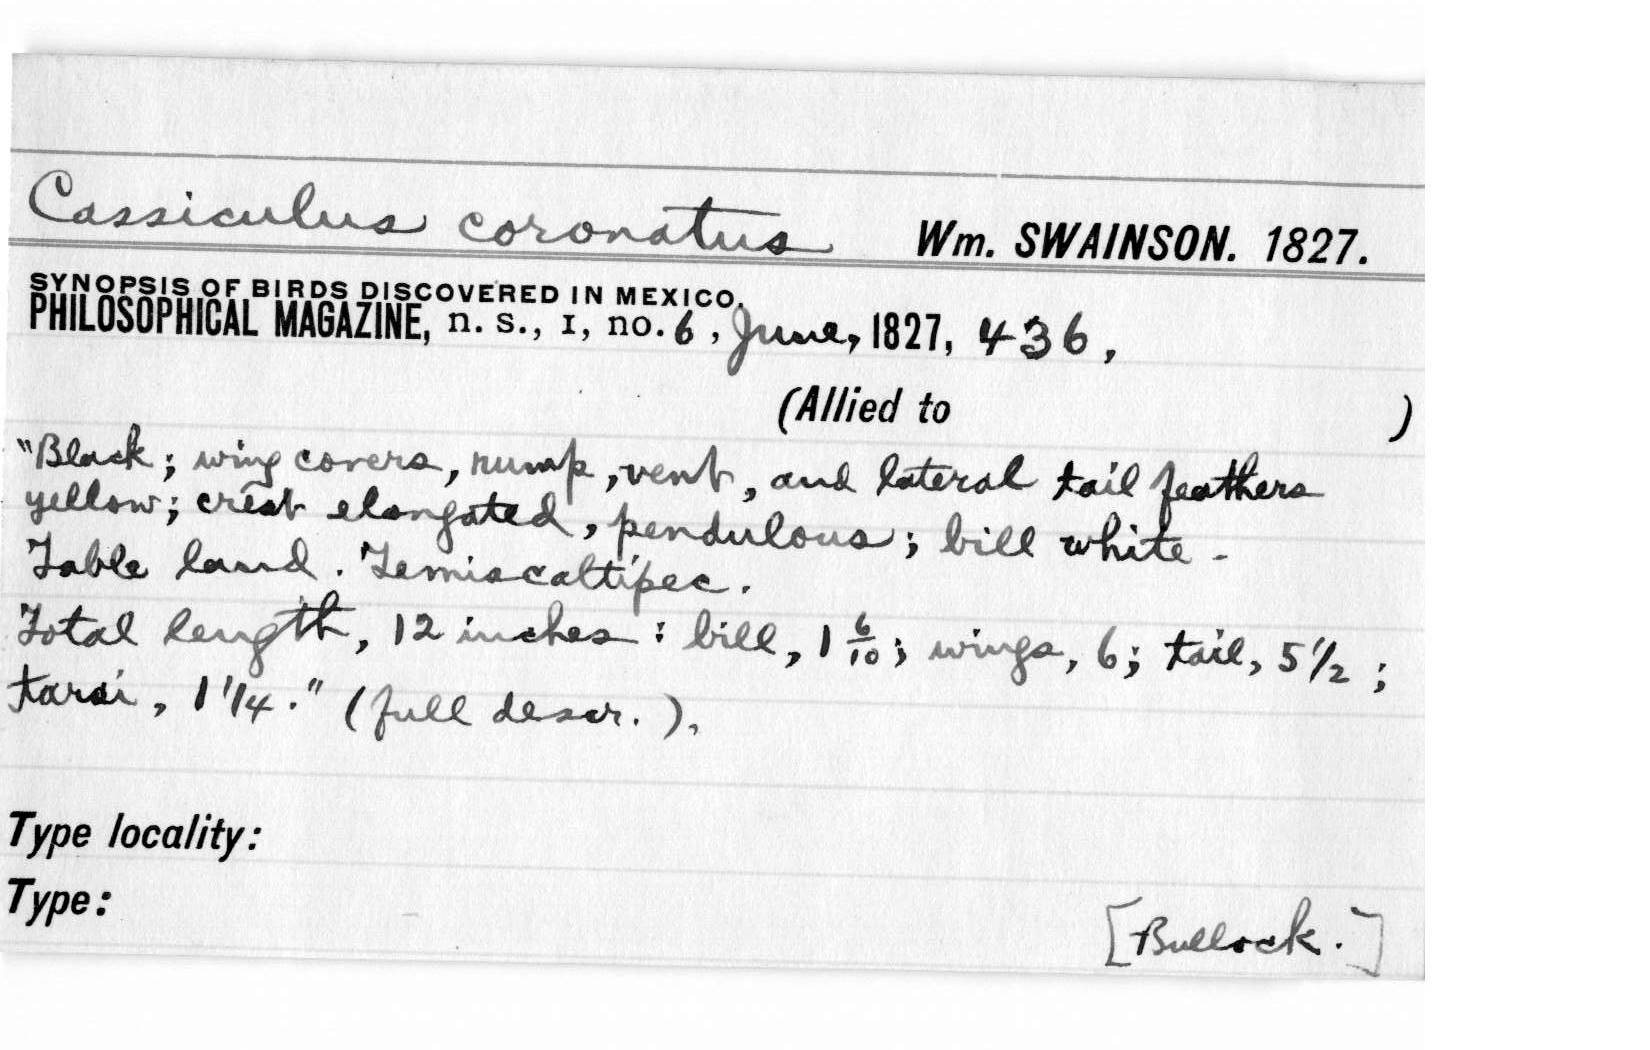 Cassiculus coronatus Wm. SWAINSON. 1827.
SYNOPSIS OF BIRDS DISCOVERED IN MEXICO.
PHILOSOPHICAL MAGAZINE, n. s., I, no. 6, June, 1827, 436,
(Allied to )
"Black; wing covers, rump, vent, and lateral tail feathers
yellow; crest elongated, pendulous; bill white -
Table land. Temiscaltipec.
Total length, 12 inches: bill, 1 6/10; wings, 6; tail, 5 1/2;
tarsi, 1 1/4." (full descr.),
Type locality:
Type:
[Bullock.]